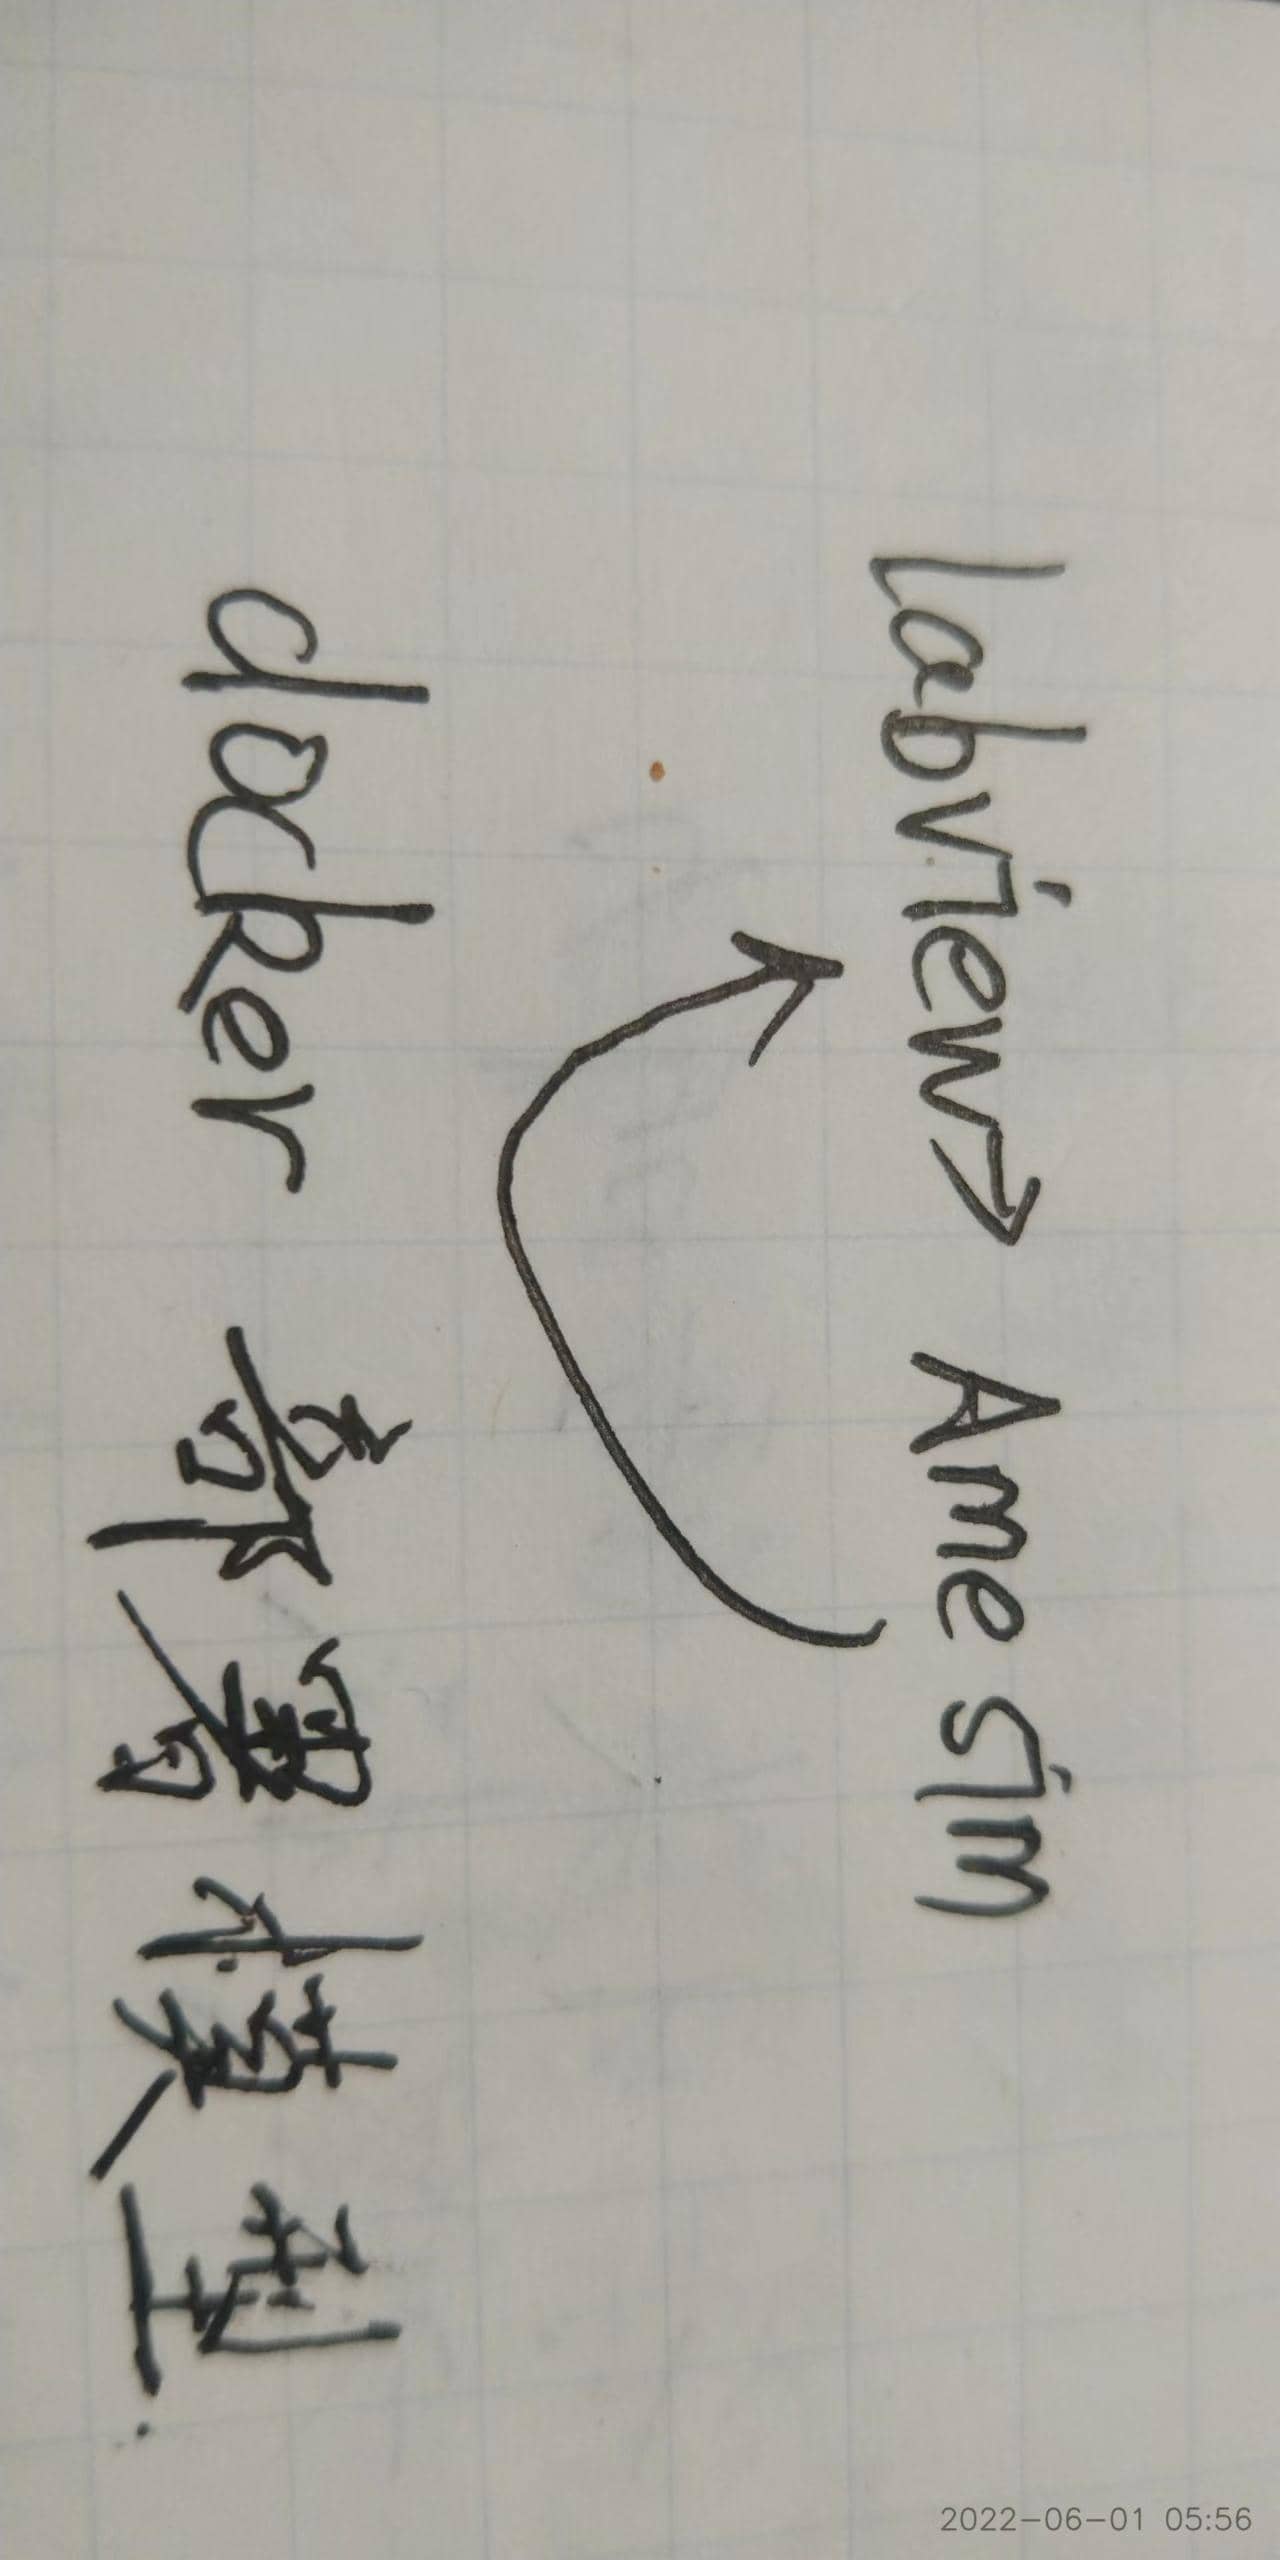 labview→ Amesim
docker 部署模型.
2022-06-01 05:56